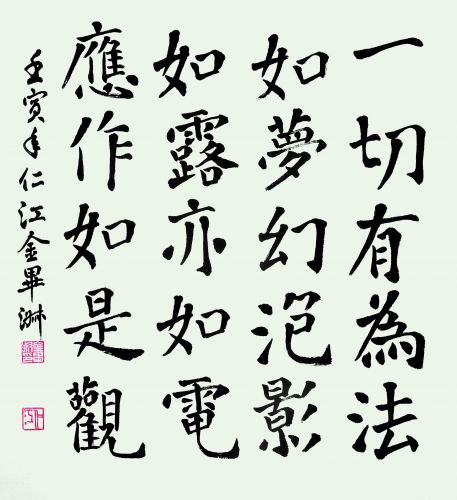 一切有為法
如夢幻泡影
如露亦如電
應作如是觀
壬寅年仁江金畢洲